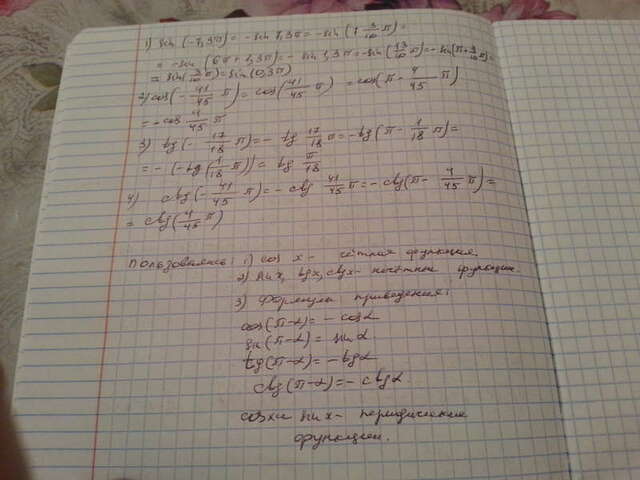 1) sin (-7,3π) = -sin 7,3π = -sin (7 3/10 π) =
= -sin (6π + 1,3π) = - sin 1,3π = -sin (13/10 π) = -sin(π + 3/10 π) =
= sin(3/10 π) = sin(0,3π)
2) cos(- 41/45 π) = cos(41/45 π) = cos(π - 4/45 π)
= -cos 4/45 π
3) tg(- 17/18 π) = - tg 17/18 π = -tg(π - 1/18 π) =
= - (-tg(1/18 π)) = tg π/18
4) ctg(- 41/45 π) = - ctg 41/45 π = - ctg(π - 4/45 π) =
= ctg(4/45 π)
Пользовались: 1) cos x - чётная функция.
2) sin x, tg x, ctg x - нечётные функции.
3) Формулы приведения:
cos(π-α) = -cos α
sin(π-α) = sin α
tg(π-α) = -tg α
ctg(π-α) = - ctg α.
cos x и sin x - периодические
функции.